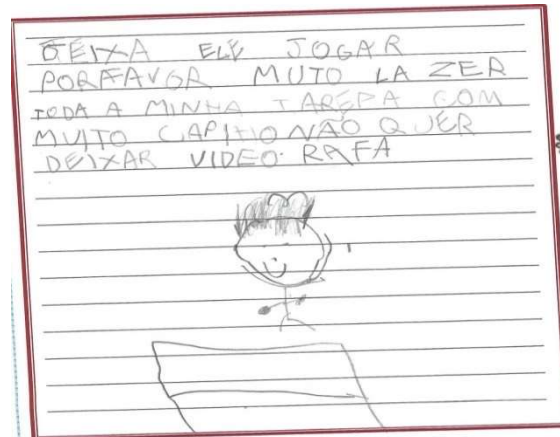 DEIXA ELE JOGAR
PORFAVOR MUTO LA ZER
TODA A MINHA TAREPA COM
MUITO CAPIHO NÃO QUER
DEIXAR VIDEO. RAFA